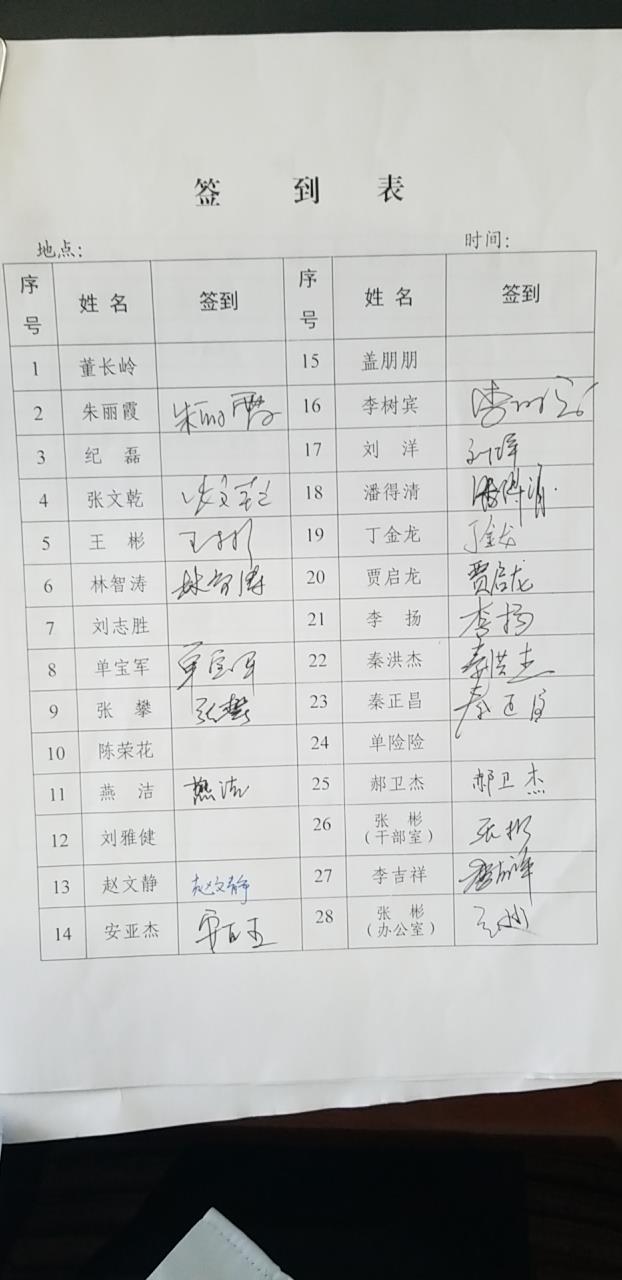 签到表
地点： 时间：
序号 姓名 签到 序号 姓名 签到
1 董长岭 15 盖朋朋
2 朱丽霞 朱丽霞 16 李树宾
3 纪磊 17 刘洋 刘洋
4 张文乾 张文乾 18 潘得清 潘得清
5 王彬 王彬 19 丁金龙 丁金龙
6 林智涛 林智涛 20 贾启龙 贾启龙
7 刘志胜 21 李扬 李扬
8 单宝军 单宝军 22 秦洪杰 秦洪杰
9 张攀 张攀 23 秦正昌 秦正昌
10 陈荣花 24 单险险
11 燕洁 燕洁 25 郝卫杰 郝卫杰
12 刘雅健 26 张彬（干部室） 张彬
13 赵文静 赵文静 27 李吉祥
14 安亚杰 28 张彬（办公室）